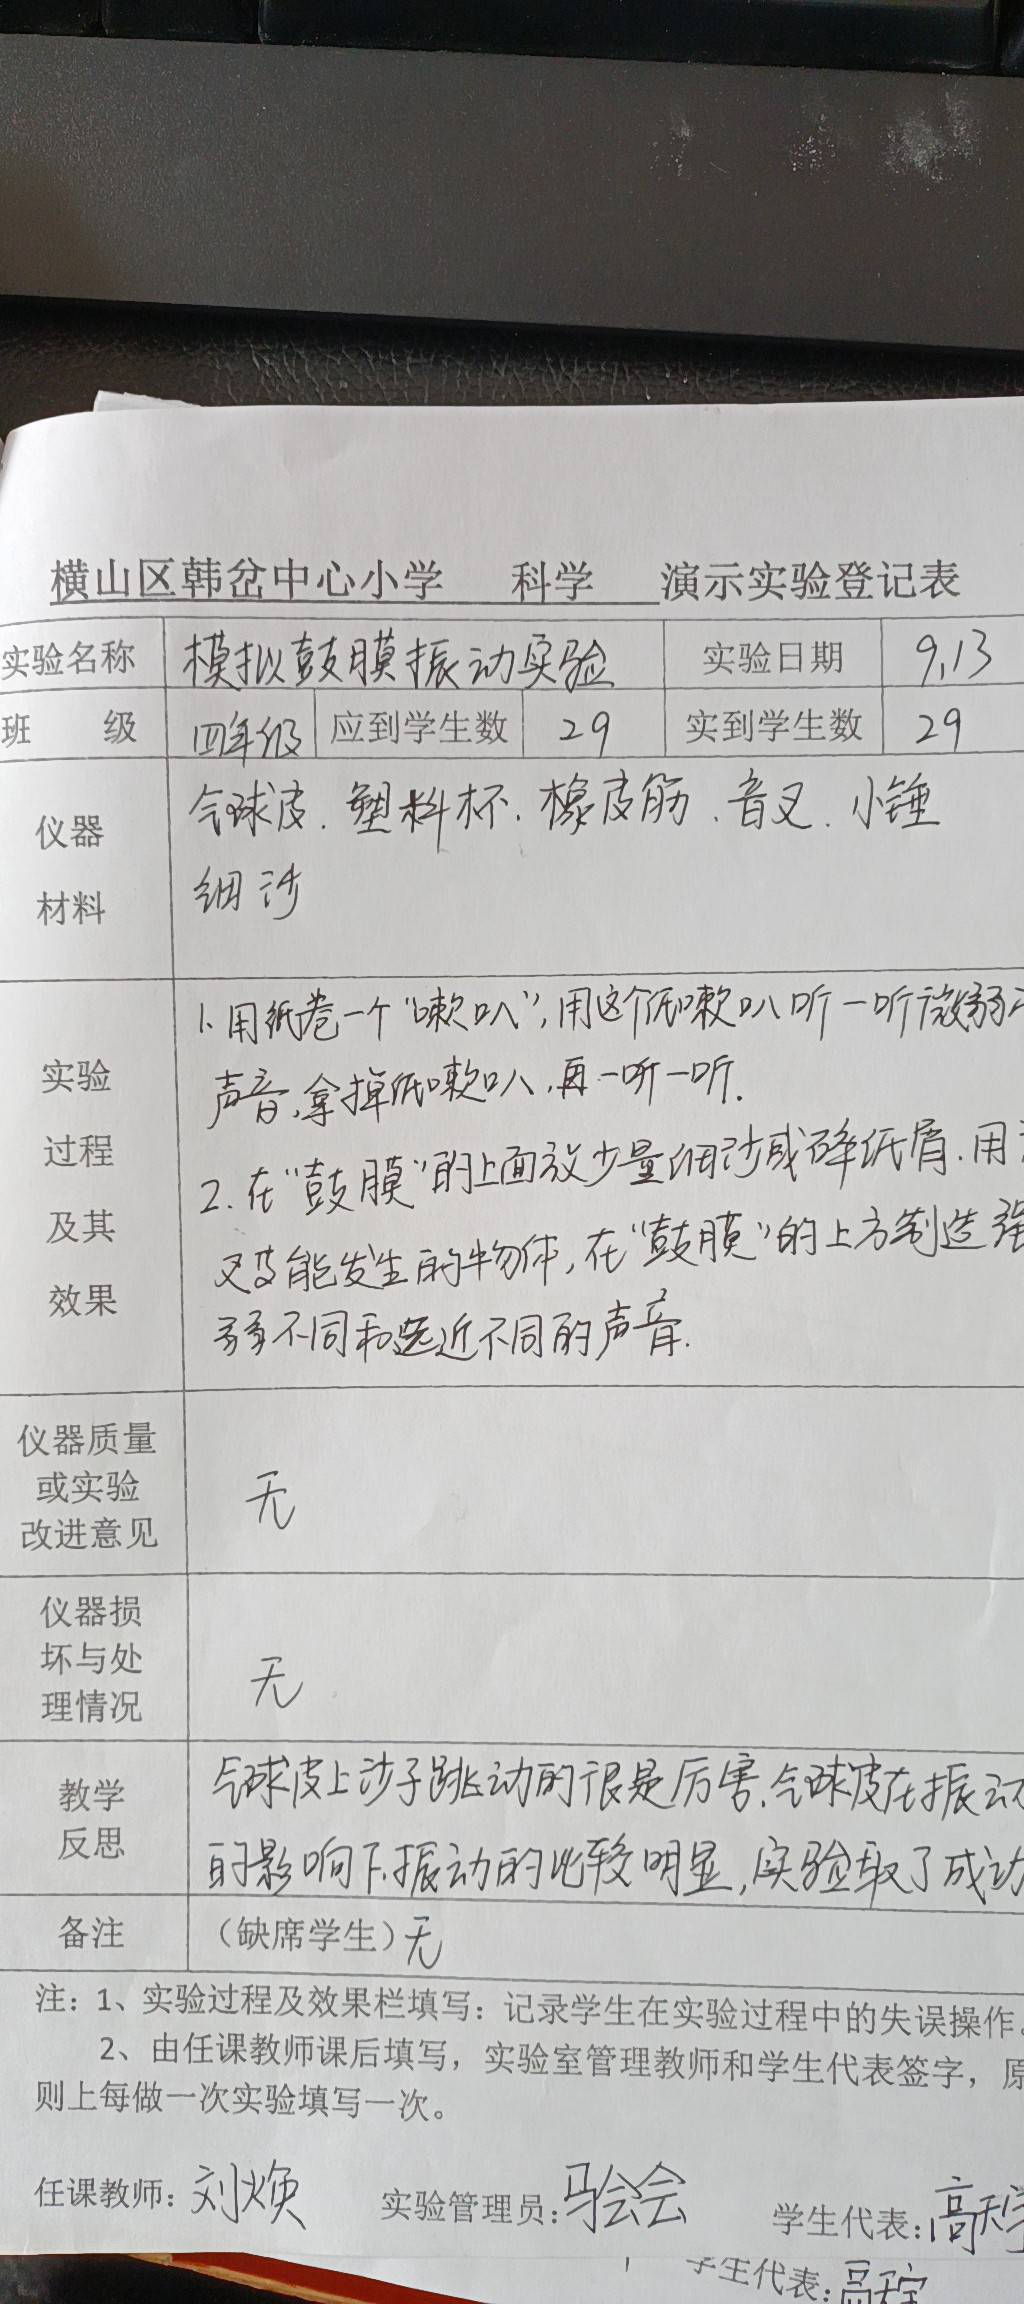 横山区韩岔中心小学 科学 演示实验登记表
实验名称 模拟鼓膜振动实验 实验日期 9.13
班 级 四年级 应到学生数 29 实到学生数 29
仪器 材料
气球皮、塑料杯、橡皮筋、音叉、小锤
细沙
实验 过程 及其 效果
1、用纸卷一个“嗽叭”,用这个纸嗽叭听一听微弱
声音,拿掉纸嗽叭,再一听一听.
2.在“鼓膜”的上面放少量细沙或碎纸屑.用
叉及能发生的物体,在“鼓膜”的上方制造强
弱不同和远近不同的声音.
仪器质量
或实验
改进意见
无
仪器损
坏与处
理情况
无
教学
反思
气球皮上沙子跳动的很是厉害.气球皮在振动
的影响下.振动的比较明显,实验取了成功
备注 （缺席学生）无
注：1、实验过程及效果栏填写：记录学生在实验过程中的失误操作。
2、由任课教师课后填写，实验室管理教师和学生代表签字，原
则上每做一次实验填写一次。
任课教师：刘焕 实验管理员： 学生代表：
学生代表：